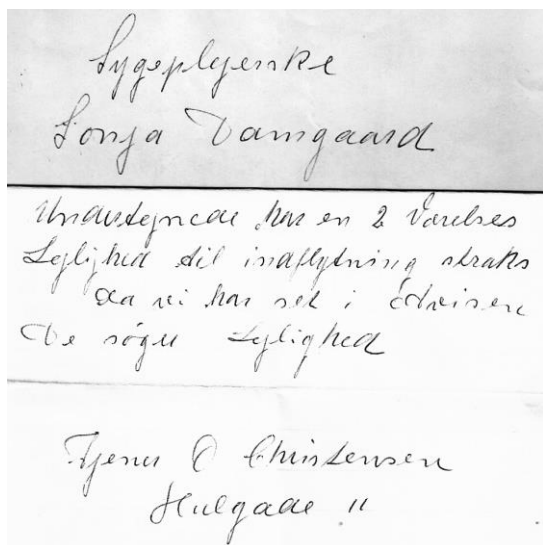 Sygeplejerske
Sonja Damgaard
Undertegnede har en 2 Værelses
Lejlighed til indflytning straks
da vi har set i Avisen
De søger Lejlighed
Tjener O Christensen
Hulgade 11